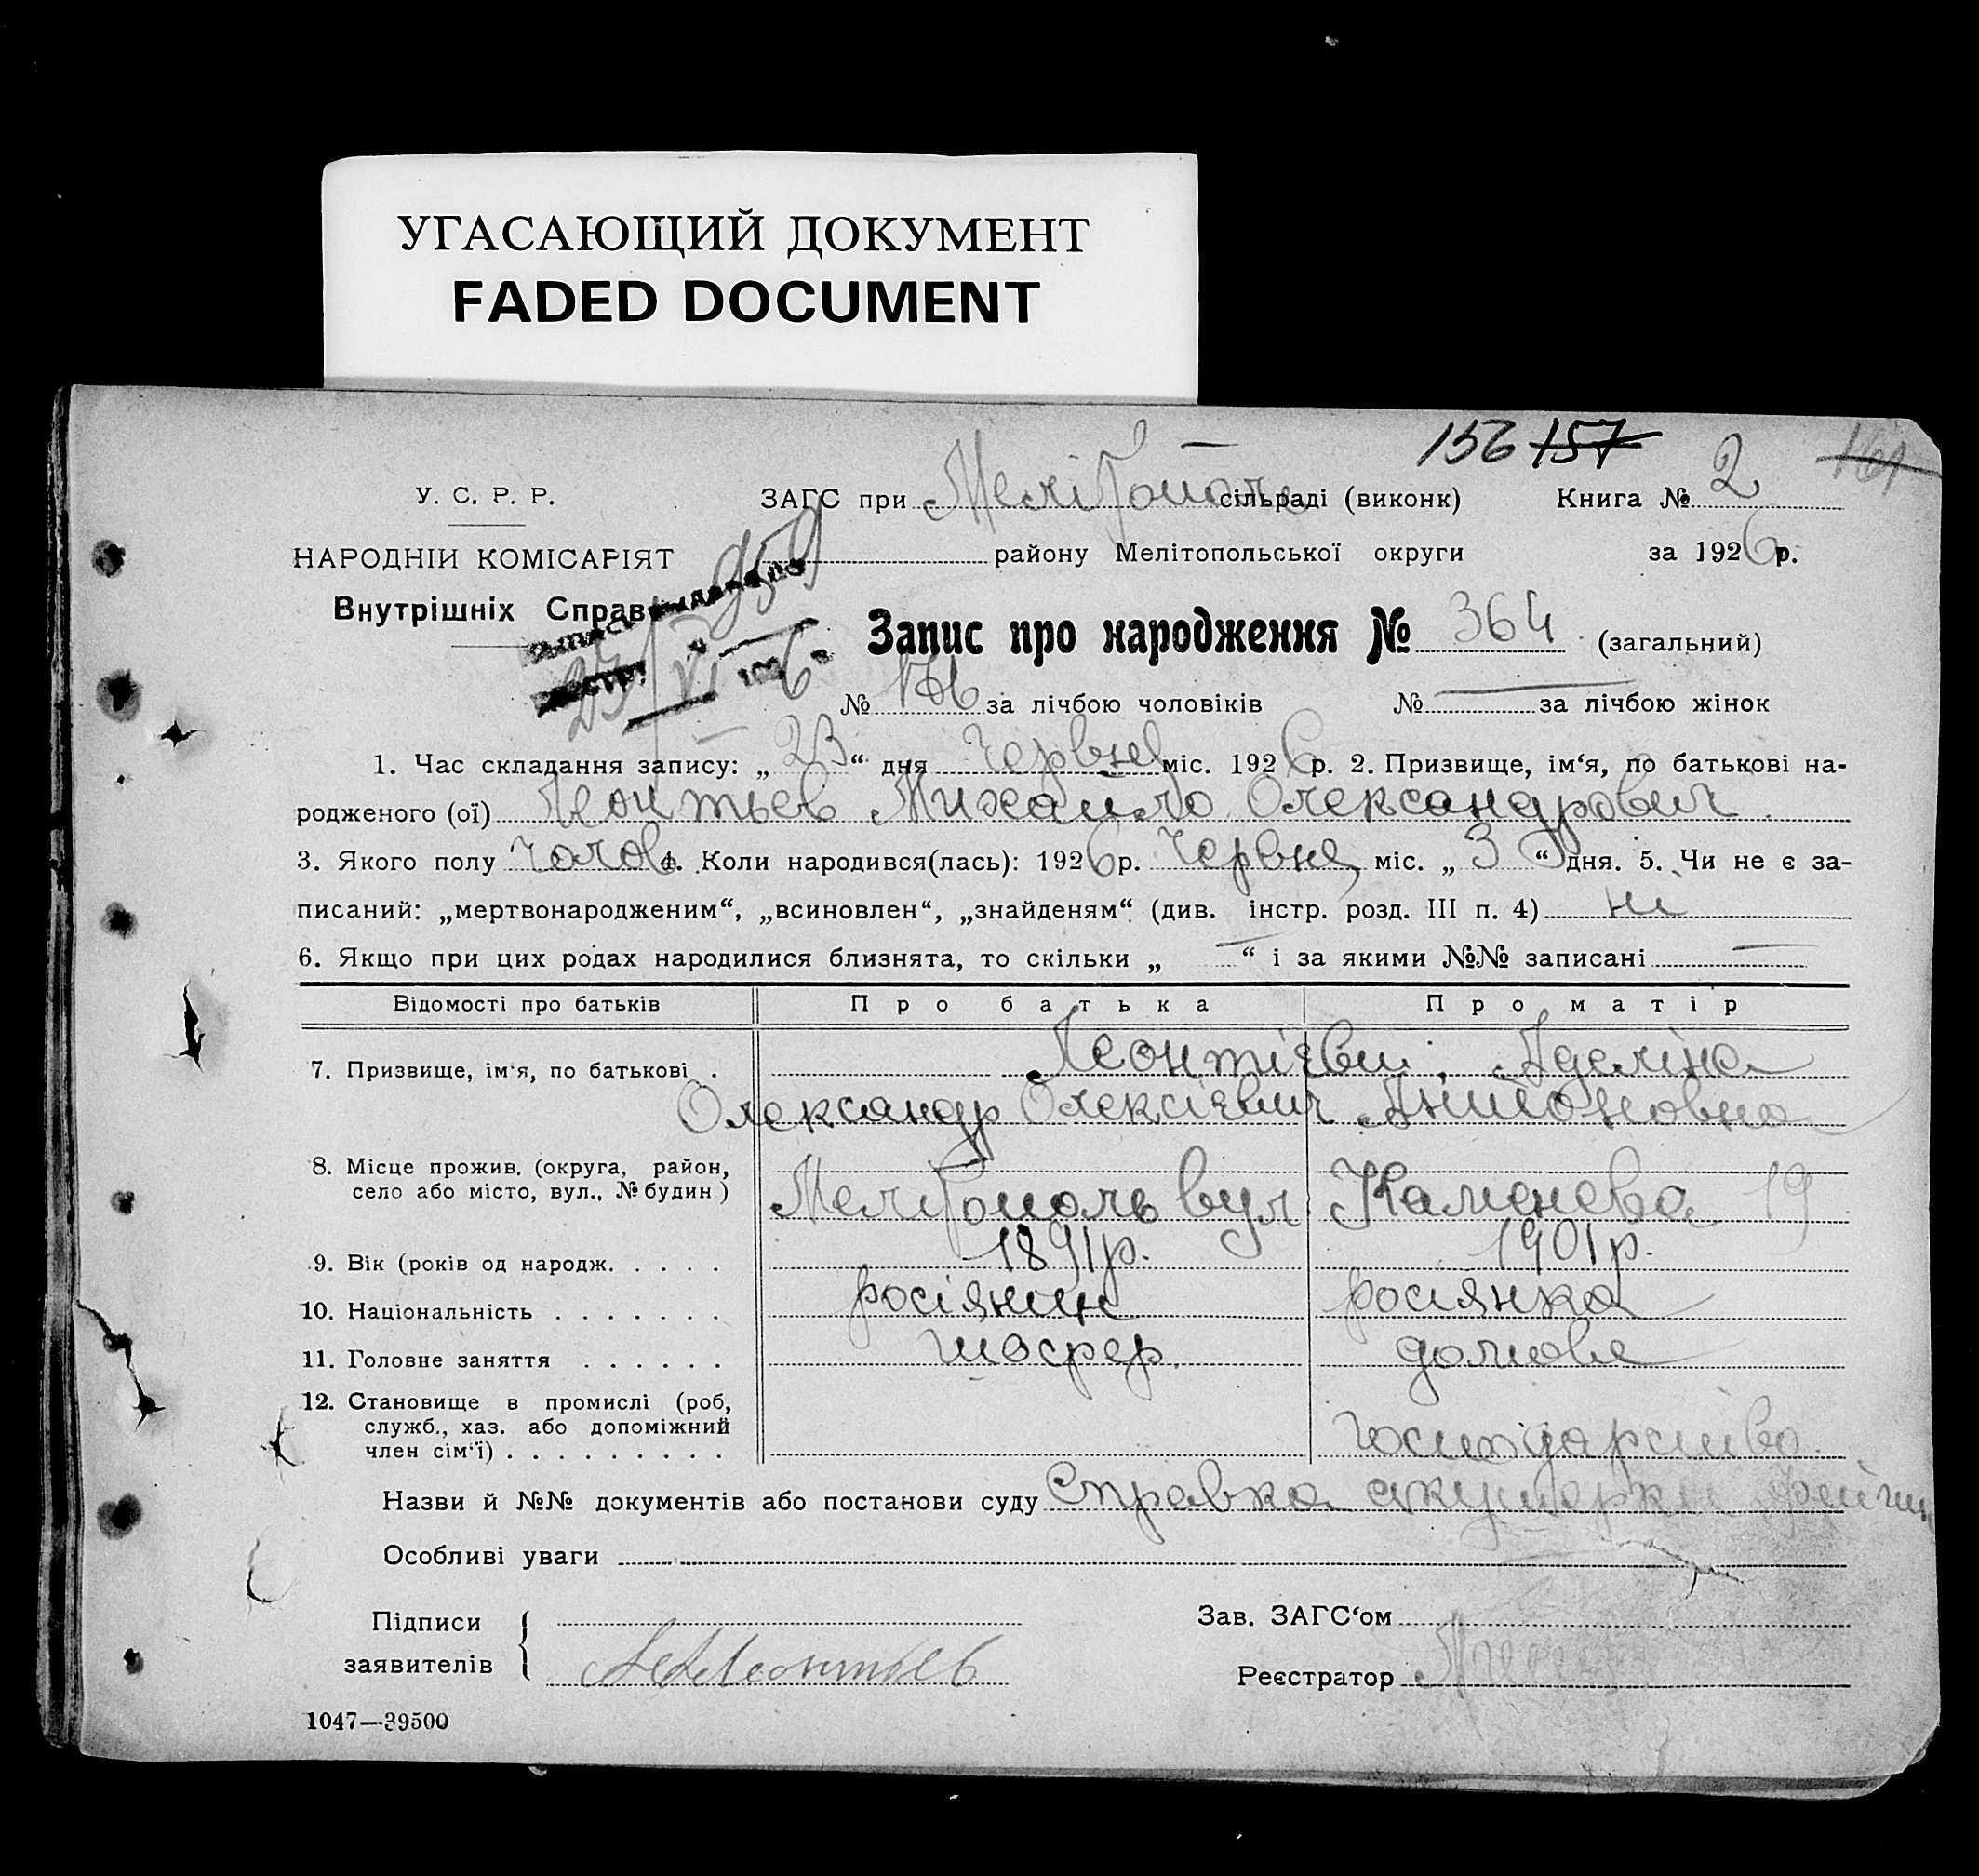 УГАСАЮЩИЙ ДОКУМЕНТ
FADED DOCUMENT
156 157 161
У. С. Р. Р.
ЗАГС при Мелітополь сільраді (виконк) Книга № 2
НАРОДНІЙ КОМІСАРІЯТ
району Мелітопольської округи за 1926 р.
Внутрішніх Справ
959
23 VI 1926
Запис про народження № 364 (загальний)
№ за лічбою чоловіків № — за лічбою жінок
1. Час складання запису: „ 23 “ дня Червня міс. 1926 р. 2. Призвище, ім‘я, по батькові на-
родженого (ої) Леонтьєв Михайло Олександрович
3. Якого полу Чолов 4. Коли народився(лась): 1926 р. Червня міс. „ 3 “ дня. 5. Чи не є за-
писаний: „мертвонародженим“, „всиновлен“, „знайденям“ (див. інстр. розд. III п. 4) ні
6. Якщо при цих родах народилися близнята, то скільки „ — “ і за якими №№ записані —
Відомості про батьків Про батька Про матір
7. Призвище, ім‘я, по батькові . Леонтієви: Аделіна
Олександр Олексієвич Антоновна
8. Місце прожив. (округа, район,
село або місто, вул., № будин) Мелітополь вул Каменева 19
9. Вік (років од народж. . . . . 1891р. 1901р.
10. Національність . . . . . . . росіянин росіянка
11. Головне заняття . . . . . . шофер. домове
12. Становище в промислі (роб,
служб., хаз. або допоміжний
член сім‘ї) . . . . . . . . . господарство.
Назви й №№ документів або постанови суду Справка акушорки
Особливі уваги
Підписи
заявителів Леонтьев
Зав. ЗАГС‘ом
Реєстратор
1047—39500